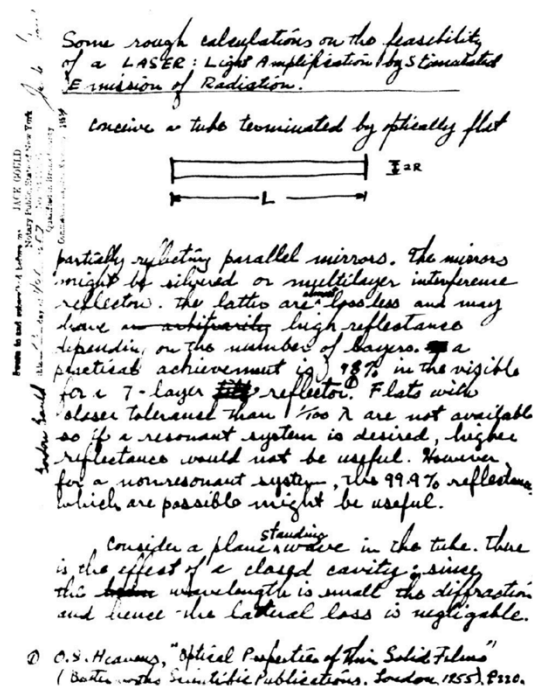 Some rough calculations on the feasibility
of a LASER: Light Amplification by Stimulated
Emission of Radiation.
conceive a tube terminated by optically flat
2R
L
partially reflecting parallel mirrors. The mirrors
might be silvered or multilayer interference
reflectors. The latter are almost lossless and may
have an arbitrarily high reflectance
depending on the number of layers. a
practical achievement is 98% in the visible
for a 7-layer reflector.① Flats with
closer tolerance than 1/100 λ are not available
so if a resonant system is desired, higher
reflectance would not be useful. However
for a nonresonant system, the 99.9% reflectance
which are possible might be useful.
Consider a plane standing wave in the tube. There
is the effect of a closed cavity; since
the wavelength is small the diffraction
and hence the lateral loss is negligable.
① O.S. Heavens, "Optical Properties of Thin Solid Films"
(Butterworths Scientific Publications. London, 1955), P220.
JACK GOULD
Notary Public, State of New York
Gordon Gould